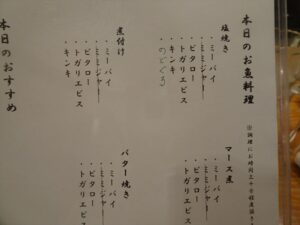 本日のお魚料理
※調理にお時間三十分程度頂きま
塩焼き
・ミーバイ
・ミミジャー
・ビタロー
・トガリエビス
・キンキ
・のどぐろ
マース煮
・ミーバイ
・ミミジャー
・ビタロー
・トガリエビス
煮付け
・ミーバイ
・ミミジャー
・ビタロー
・トガリエビス
・キンキ
バター焼き
・ミーバイ
・ミミジャー
・ビタロー
・トガリエビス
本日のおすすめ